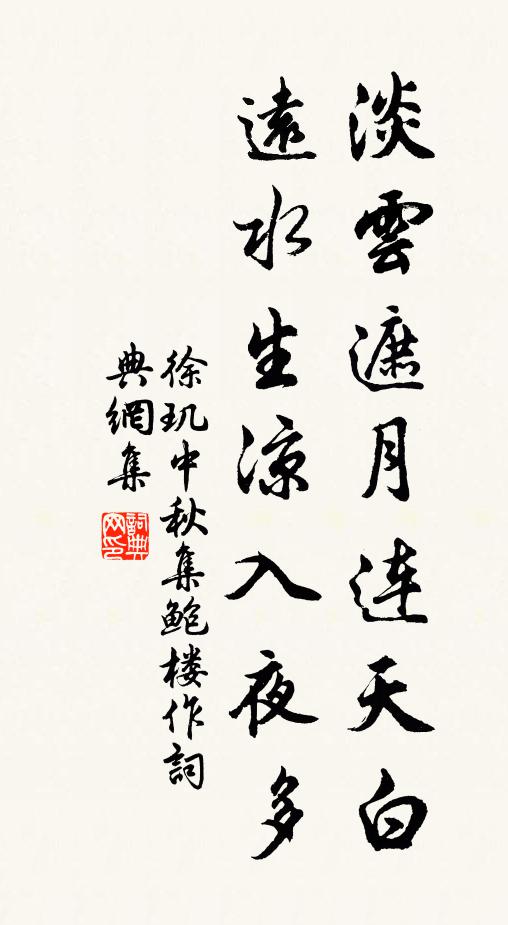 淡雲遮月連天白
遠水生涼入夜多
徐玑中秋集鮑楼作詞
典網集
詞典网印